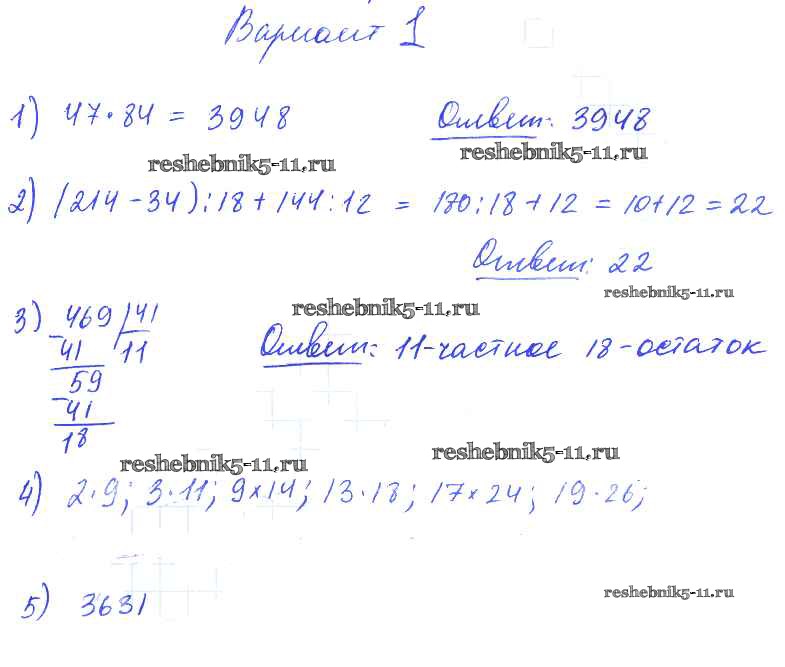 Вариант 1
1) 47·84 = 3948 Ответ: 3948
reshebnik5-11.ru reshebnik5-11.ru
2) (214-34):18+144:12 = 180:18+12 = 10+12 = 22
Ответ: 22
reshebnik5-11.ru reshebnik5-11.ru
3) 469 | 41
- 41 11 Ответ: 11-частное 18-остаток
59
- 41
18
reshebnik5-11.ru reshebnik5-11.ru
4) 2·9; 3·11; 9×14; 13·18; 17×24; 19·26;
5) 3631 reshebnik5-11.ru